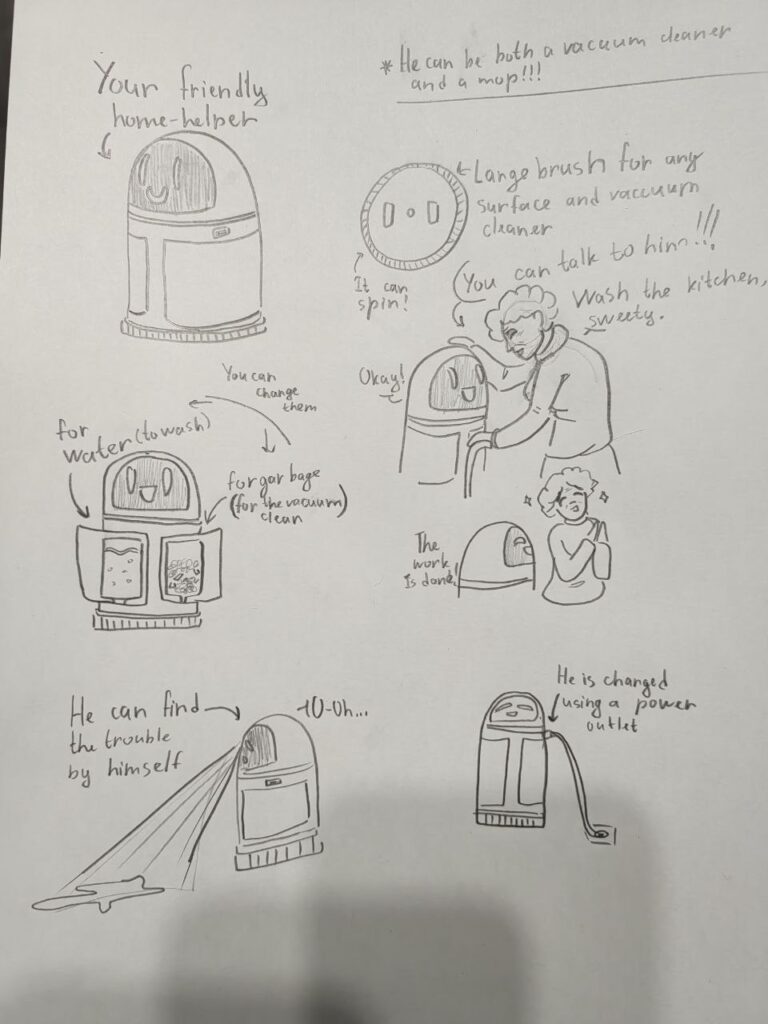 Your friendly
home-helper
* He can be both a vacuum cleaner
and a mop!!!
Large brush for any
surface and vacuum
cleaner
It can
spin!
You can talk to him!!!
Wash the kitchen,
sweety.
Okay!
You can
change
them
for
water (to wash)
for garbage
(for the vacuum)
clean
The
work
Is done!
He can find
the trouble
by himself
U-Oh...
He is changed
using a power
outlet